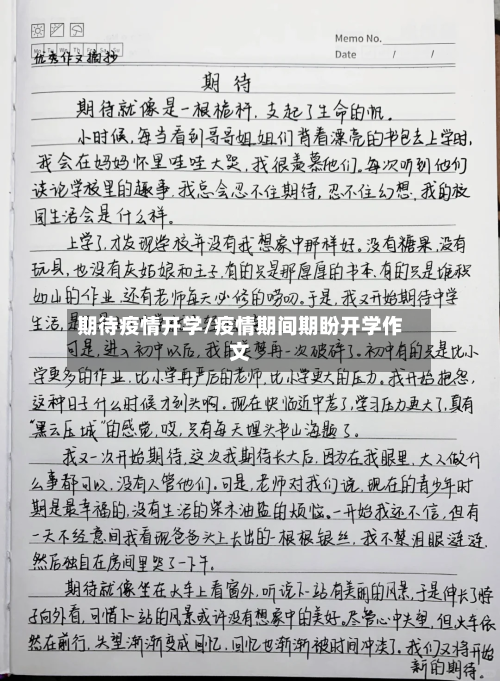 Memo No.
Mo Tu We Th Fr Sa Su
Date / /
优秀作文摘抄
期待
期待就像是一根桅杆，支起了生命的帆。
小时候，每当看到哥哥姐姐们背着漂亮的书包去上学时，
我会在妈妈怀里哇哇大哭，我很羡慕他们。每次听到他们
谈论学校里的趣事，我总会忍不住期待，忍不住幻想，我的校
园生活会是什么样。
上学了，才发现学校并没有我想象中那样好。没有糖果，没有
玩具，也没有灰姑娘和王子，有的只是那厚厚的书本，有的只是堆积
如山的作业，还有老师每天必修的唠叨。于是，我又开始期待中学
生活，是
期待疫情开学/疫情期间期盼开学作
文
可是，进入初中以后，我的梦再一次破碎了。初中有的只是比小
学更多的作业，比小学再严厉的老师，比小学更大的压力。我开始抱怨，
这种日子什么时候才到头啊。现在快临近中考了，学习压力更大了，真有
“黑云压城”的感觉，哎，只有每天埋头书山海题了。
我又一次开始期待，这次我期待长大后，因为在我眼里，大人做什
么事都可以，没有人管他们。可是，老师对我们说，现在的青少年时
期是最幸福的，没有生活的柴米油盐的烦恼。一开始我还不信，但有
一天不经意间我看现爸爸头上长出的一根根银丝，我不禁泪眼涟涟，
然后独自在房间里哭了一下午。
期待就像坐在火车上看窗外，听说下一站有美丽的风景，于是伸长了脖
子向外看，可惜下一站的风景或许没有想象中的美好。尽管心中失望，但火车依
然在前行，失望渐渐变成回忆，回忆也渐渐被时间冲淡了。我们又将开始
新的期待。